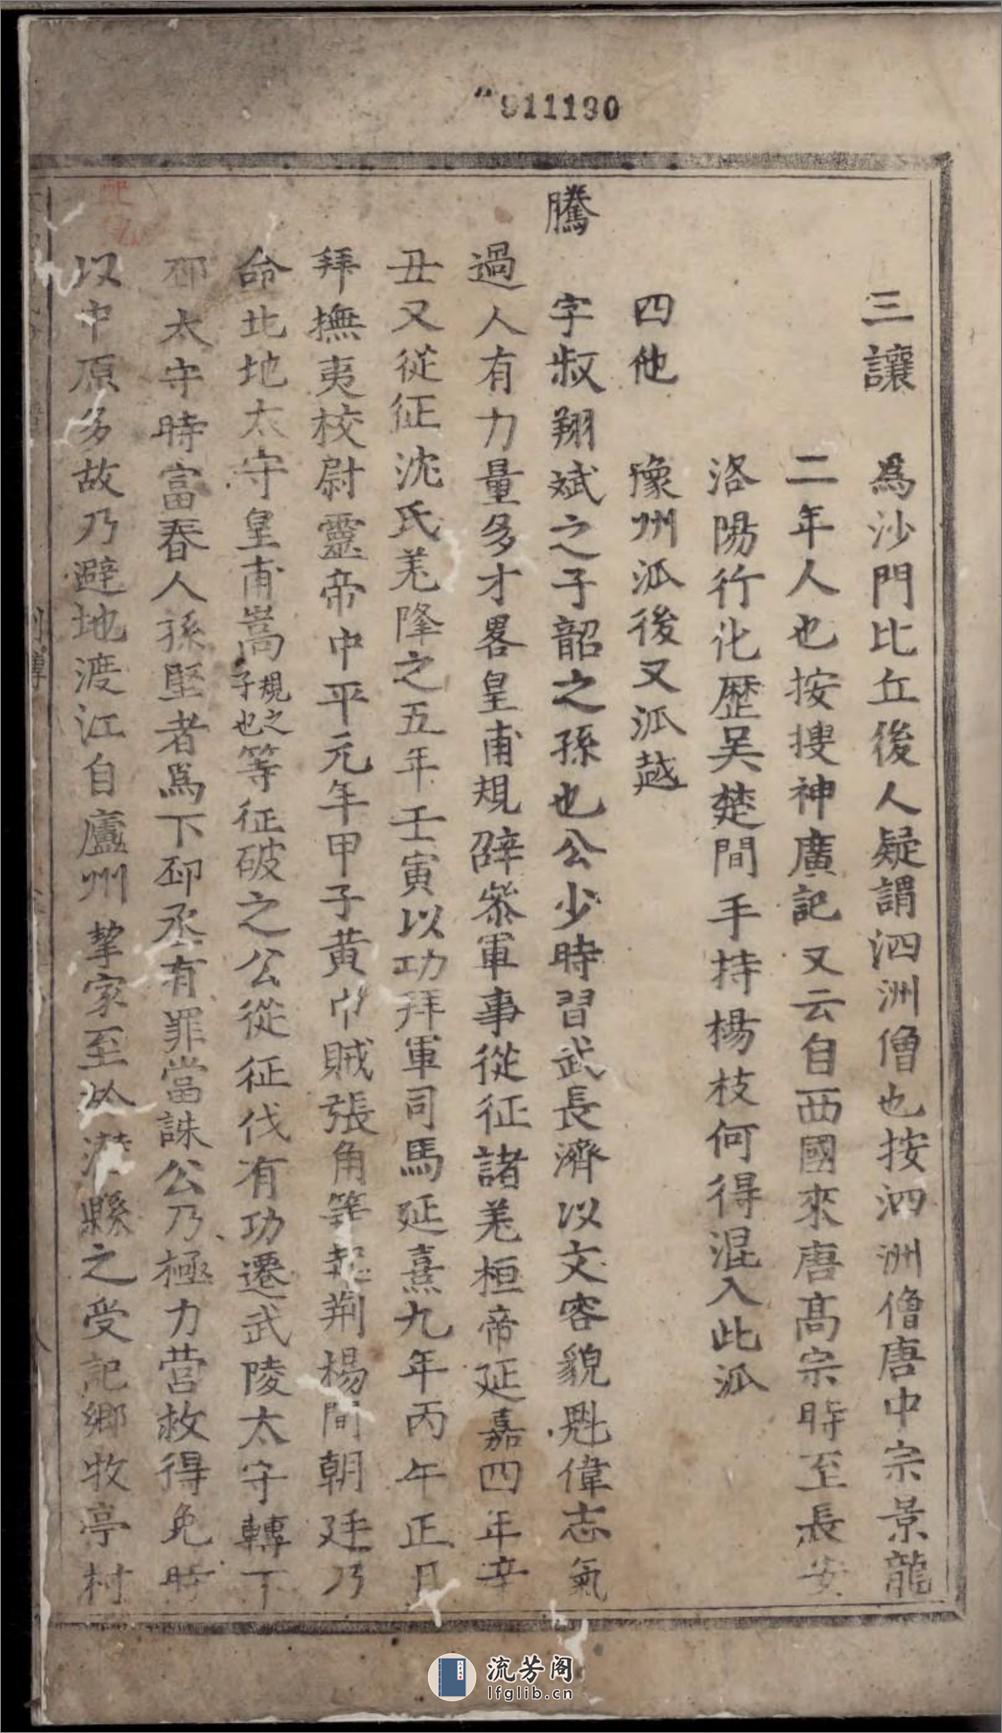 911130
三讓 為沙門比丘後人疑謂泗洲僧也按泗洲僧唐中宗景龍
二年人也按搜神廣記又云自西國來唐高宗時至長安
洛陽行化歷吴楚間手持楊枝何得混入此派
四他 豫州派後又派越
騰 字叔翔斌之子韶之孫也公少時習武長濟以文容貌魁偉志氣
過人有力量多才畧皇甫規辟叅軍事從征諸羌桓帝延嘉四年辛
丑又從征沈氏羌降之五年壬寅以功拜軍司馬延熹九年丙午正月
拜撫夷校尉靈帝中平元年甲子黄巾賊張角等起荆楊間朝廷乃
命北地太守皇甫嵩規之子也等征破之公從征伐有功遷武陵太守轉下
邳太守時富春人孫堅者爲下邳丞有罪當誅公乃極力營救得免時
以中原多故乃避地渡江自廬州挈家至於潜縣之受記鄉牧亭村
流芳阁
lfglib.cn